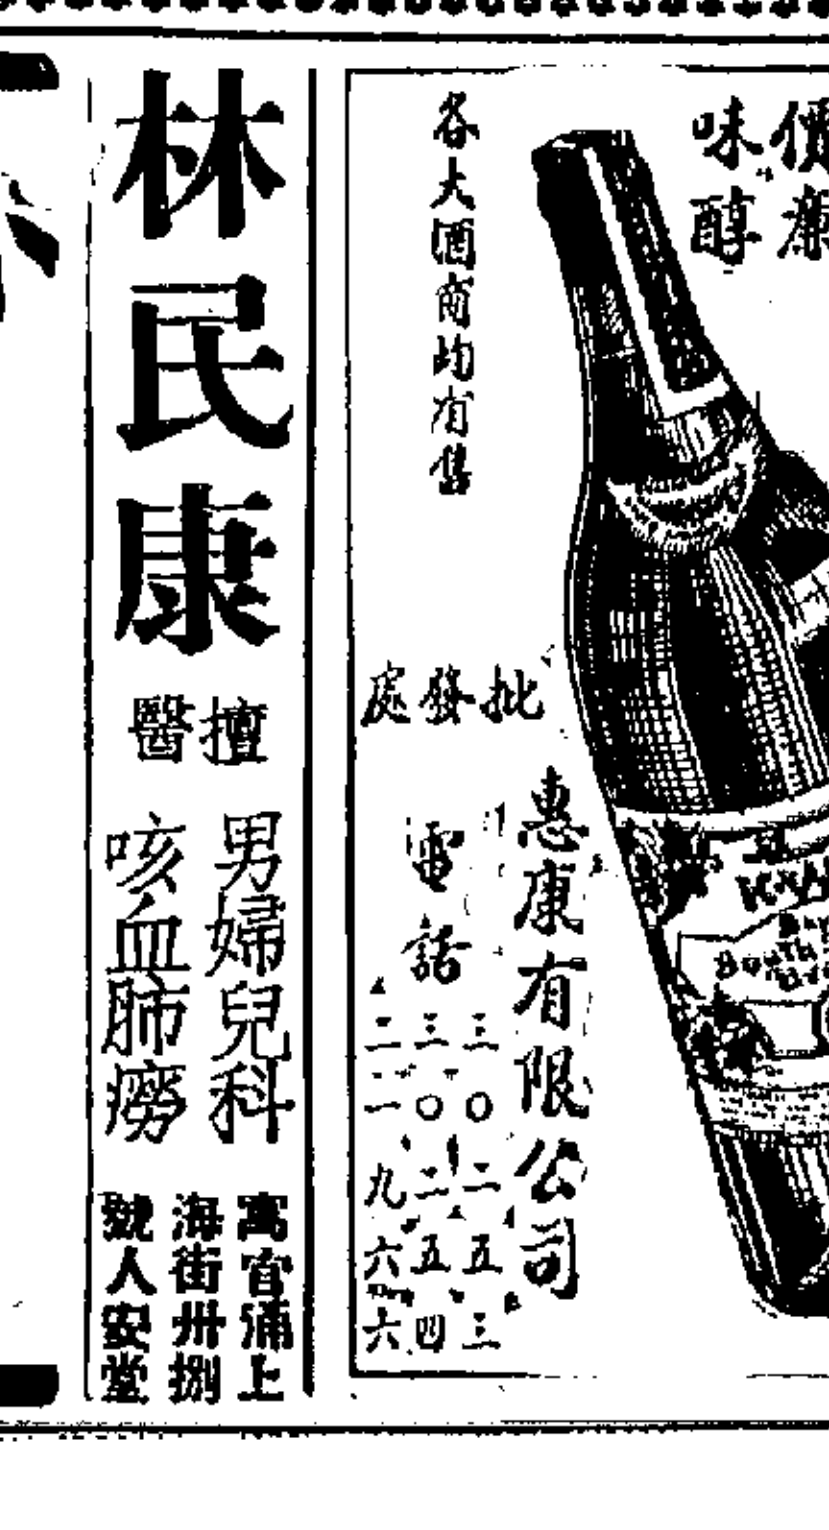 價廉
味醇
各大酒商均有售
批發處
惠康有限公司
電話
三〇二五三
三〇二五四
二一九六六
林民康
擅醫
男婦兒科
咳血肺癆
寓官涌上
海街卅捌
號人安堂